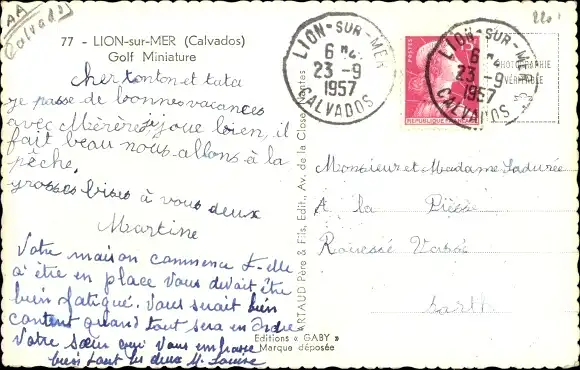 AA
Calvados
2201
77 - LION-sur-MER (Calvados)
Golf Miniature
cher tonton et tata
je passe de bonnes vacances
avec Mérère je joue bien, il
fait beau nous allons à la
pêche.
grosses bises à vous deux
Martine
Votre maison commence t-elle
a être en place Vous devait être
bien fatigué. Vous serait bien
content quand tout sera en ordre
Votre sœur qui Vous embrasse
bien tout les deux M. Louise
Editions « GABY »
Marque déposée
ARTAUD Père & Fils, Edit., Av. de la Close, Nantes
LION-SUR-MER
6 H.
23 -9
1957
CALVADOS
POSTES
15F
REPUBLIQUE FRANÇAISE
LION-SUR-MER
6
23 -9
1957
CALVADOS
Monsieur et Madame Ladurée
A la
Rouessé Vassé
Sarth